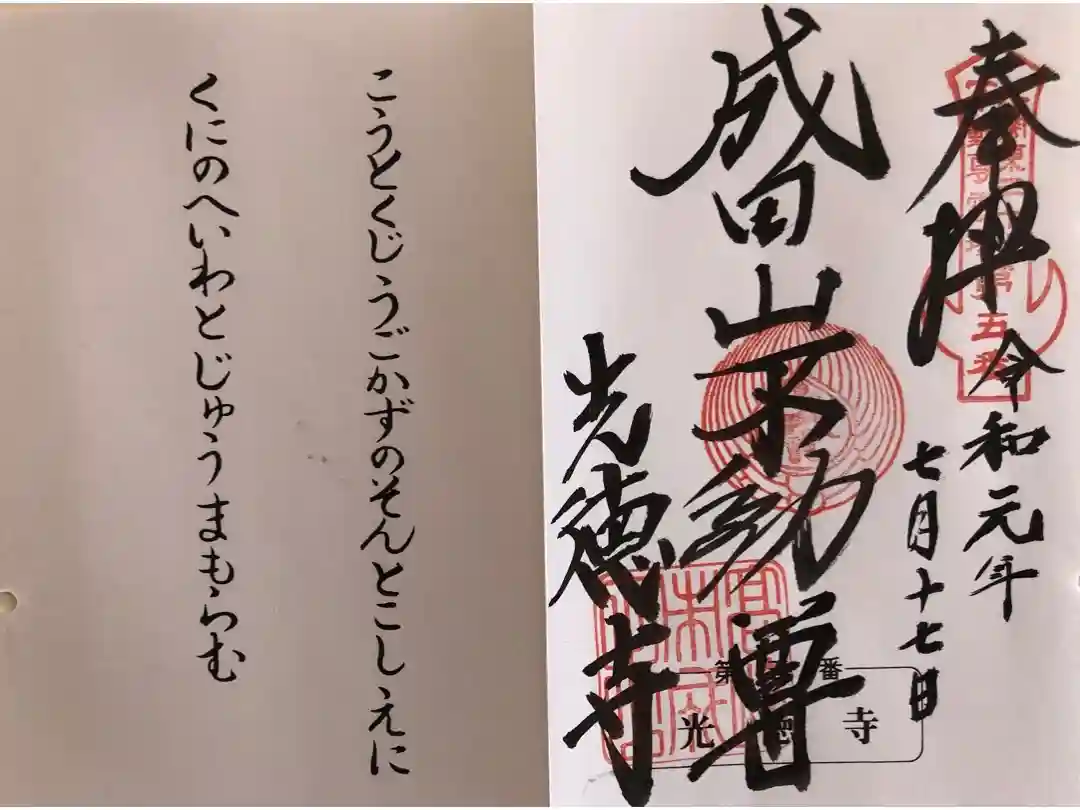 奉拝
令和元年
七月十七日
第五番
成田山不動尊
光徳寺
第 番
光徳寺
こうとくじうごかずのそんとこしえに
くにのへいわとじゅうまもらむ